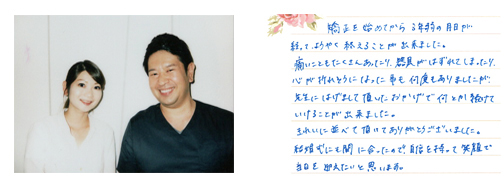 矯正を始めてから3年弱の月日が
経って、ようやく終えることが出来ました。
痛いこともたくさんあったり、器具がはずれてしまったり、
心が折れそうになった事も何度もありましたが、
先生にはげまして頂いたおかげで何とか続けて
いけることが出来ました。
きれいに並べて頂けてありがとうございました。
結婚式にも間に合ったので自信を持って笑顔で
当日を迎えたいと思います。